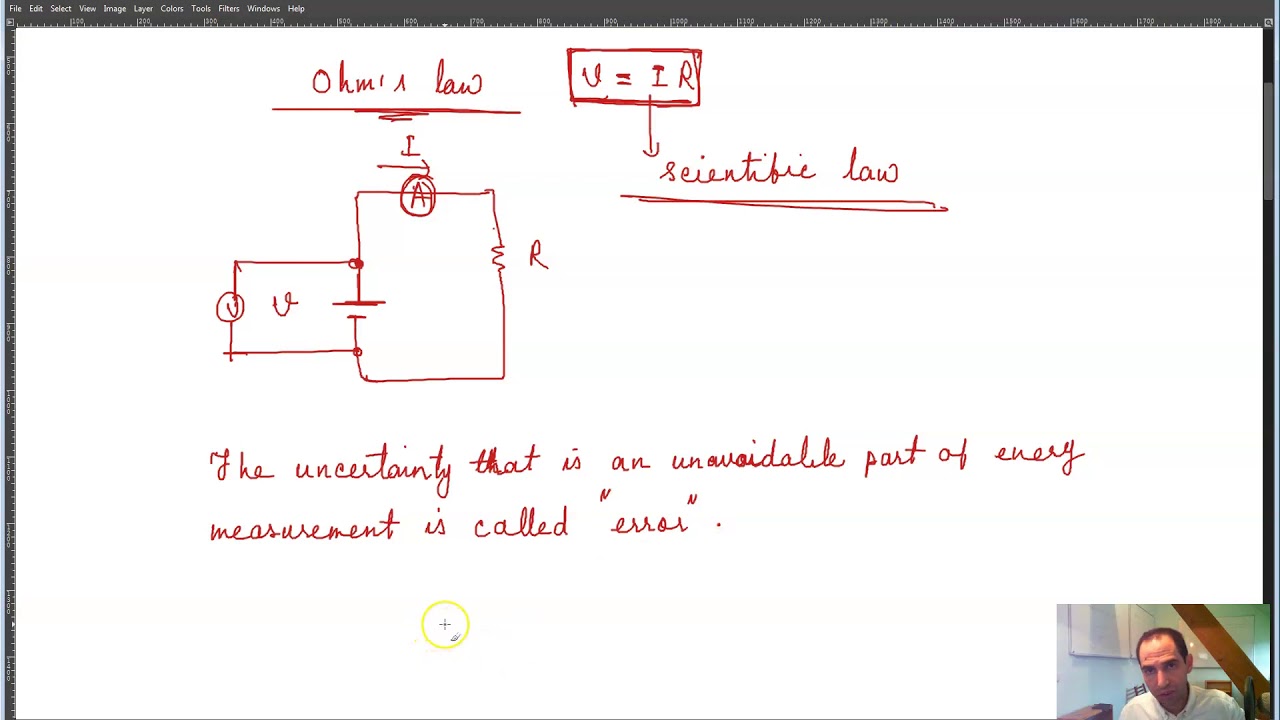 File Edit Select View Image Layer Colors Tools Filters Windows Help
Ohm's law
V = I R
scientific law
I
A
R
V
V
The uncertainty that is an unavoidable part of every
measurement is called "error".